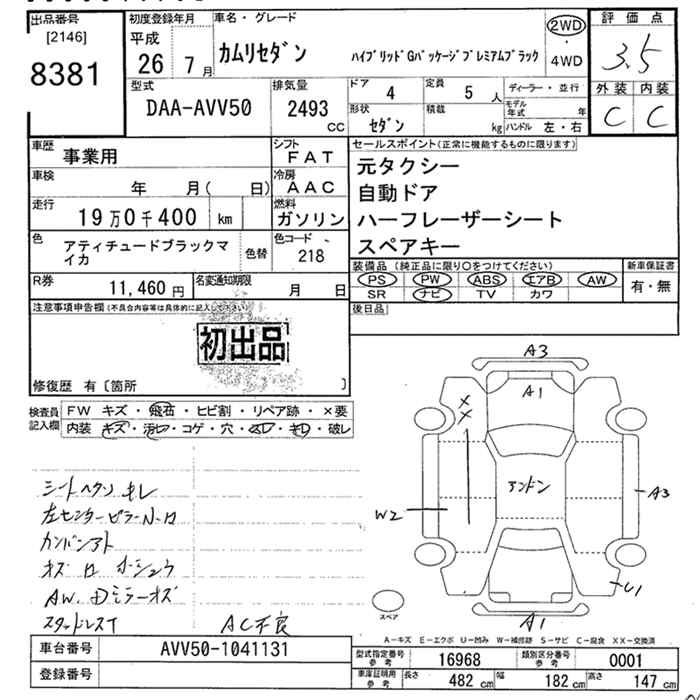 出品番号
[2146]
8381
初度登録年月
平成
26 7月
車名・グレード
カムリセダン
ハイブリッドGパッケージプレミアムブラック
2WD
・
4WD
評価点
3.5
外装 内装
C C
型式
DAA-AVV50
排気量
2493
CC
ドア
4
定員
5 人
ディーラー・並行
形状
セダン
積載
kg
モデル年式 年
ハンドル 左・右
車歴 事業用
シフト
FAT
車検 年 月( 日)
冷房
AAC
走行
19万0千400 km
燃料
ガソリン
色
アティチュードブラックマイカ
色替
色コード
218
R券
11,460円
名変通知期限
月 日
セールスポイント(正常に機能するものに限ります)
元タクシー
自動ドア
ハーフレーザーシート
スペアキー
装備品(純正品に限り○をつけてください)
PS PW ABS エアB AW
SR ナビ TV カワ
新車保証書
有・無
後日品
注意事項申告欄(不具合内容等は具体的に記入して下さい)
初出品
修復歴 有〔箇所 〕
検査員記入欄
FW キズ・飛石・ヒビ割・リペア跡・×要
内装 キズ・汚れ・コゲ・穴・スレ・キレ・破レ
シートヘタリ キレ
左センターピラーN-ロ
カンバンアト
AW.
スタッドレスT
AC不良
A3
A1
XX
アンドン
W2
A3
C1
A1
スペア
A-キズ E-エクボ U-凹み W-補修跡 S-サビ C-腐食 XX-交換済
車台番号
AVV50-1041131
登録番号
型式指定番号 参考
16968
類別区分番号 参考
0001
車庫証明用 参考
長さ 482 cm
幅 182 cm
高さ 147 cm